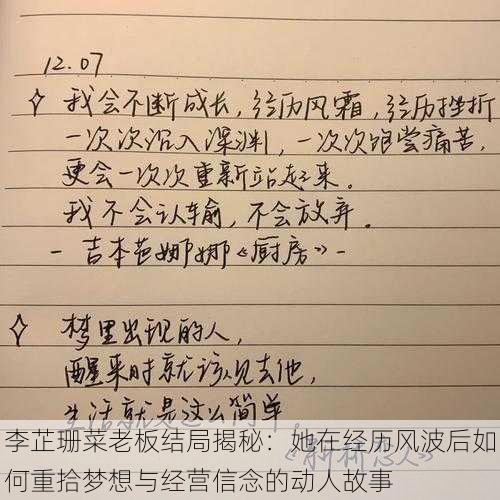 12.07
我会不断成长，经历风霜，经历挫折
一次次沉入深渊，一次次饱尝痛苦，
更会一次次重新站起来。
我不会认输，不会放弃。
- 吉本芭娜娜《厨房》-
梦里出现的人，
醒来时就该见去他，
生活就是这么简单
李芷珊菜老板结局揭秘：她在经历风波后如
何重拾梦想与经营信念的动人故事